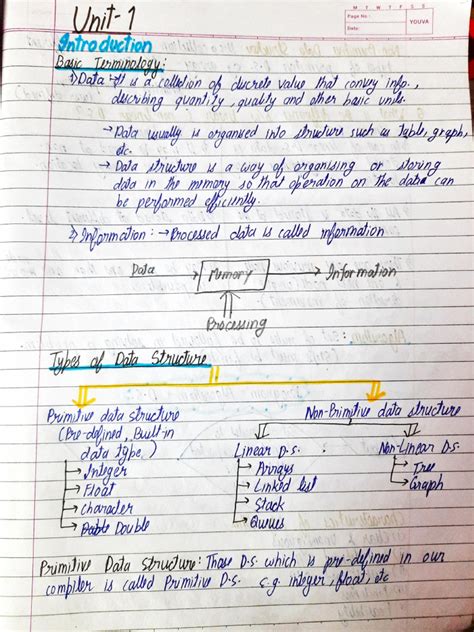 M T W T F S S
Page No.:
Date:
YOUVA
Unit-1
Introduction
Basic Terminology:
1) Data :- It is a colletion of discrete value that convey info.,
discribing quantity, quality and other basic units.
→ Data usually is organised into structure such as table, graph,
etc.
→ Data structure is a way of organising or storing
data in the memory so that operation on the data can
be performed efficiently.
2) Information: → Processed data is called information
Data → Memory → Information
Processing
Types of Data Structure
Primitive data structure Non-Primitive data structure
(Pre-defined, Built-in
data type,) Linear D.S. Non-Linear D.S
→ Integer → Arrays → Tree
→ Float → Linked list → Graph
→ character → Stack
→ Double → Queues
Primitive Data Structure: Those D.S. which is pre-defined in our
compiler is called Primitive D.S. e.g. integer, float, etc